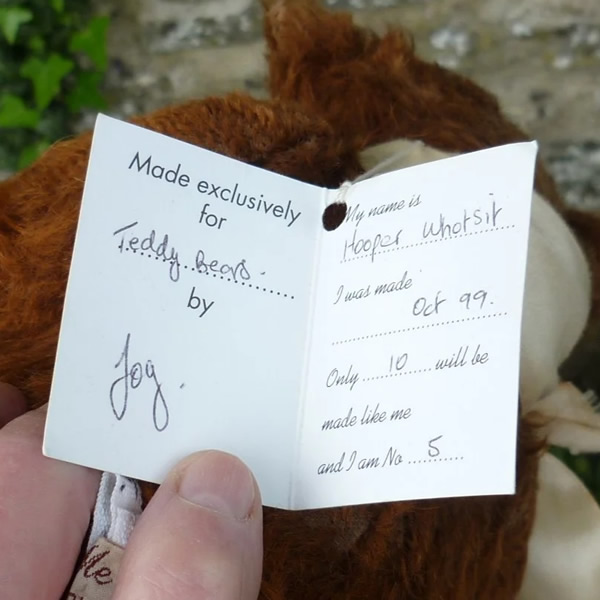 Made exclusively
for
Teddy Bears.
by
Joy.
My name is
Hooper Whotsit
I was made
Oct 99.
Only 10 will be
made like me
and I am No 5
Me